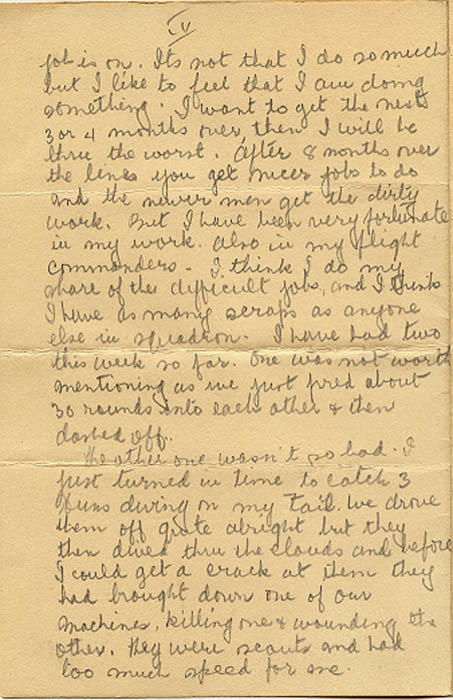 IV
job is on. It's not that I do so much
but I like to feel that I am doing
something. I want to get the next
3 or 4 months over, then I will be
thru the worst. After 8 months over
the lines you get nicer jobs to do
and the newer men get the dirty
work. But I have been very fortunate
in my work. Also in my flight
commanders. I think I do my
share of the difficult jobs, and I think
I have as many scraps as anyone
else in squadron. I have had two
this week so far. One was not worth
mentioning as we just fired about
30 rounds into each other & then
dashed off.
The other one wasn't so bad. I
just turned in time to catch 3
Huns diving on my tail. We drove
them off quite alright but they
then dived thru the clouds and before
I could get a crack at them they
had brought down one of our
machines, killing one & wounding the
other. They were scouts and had
too much speed for me.